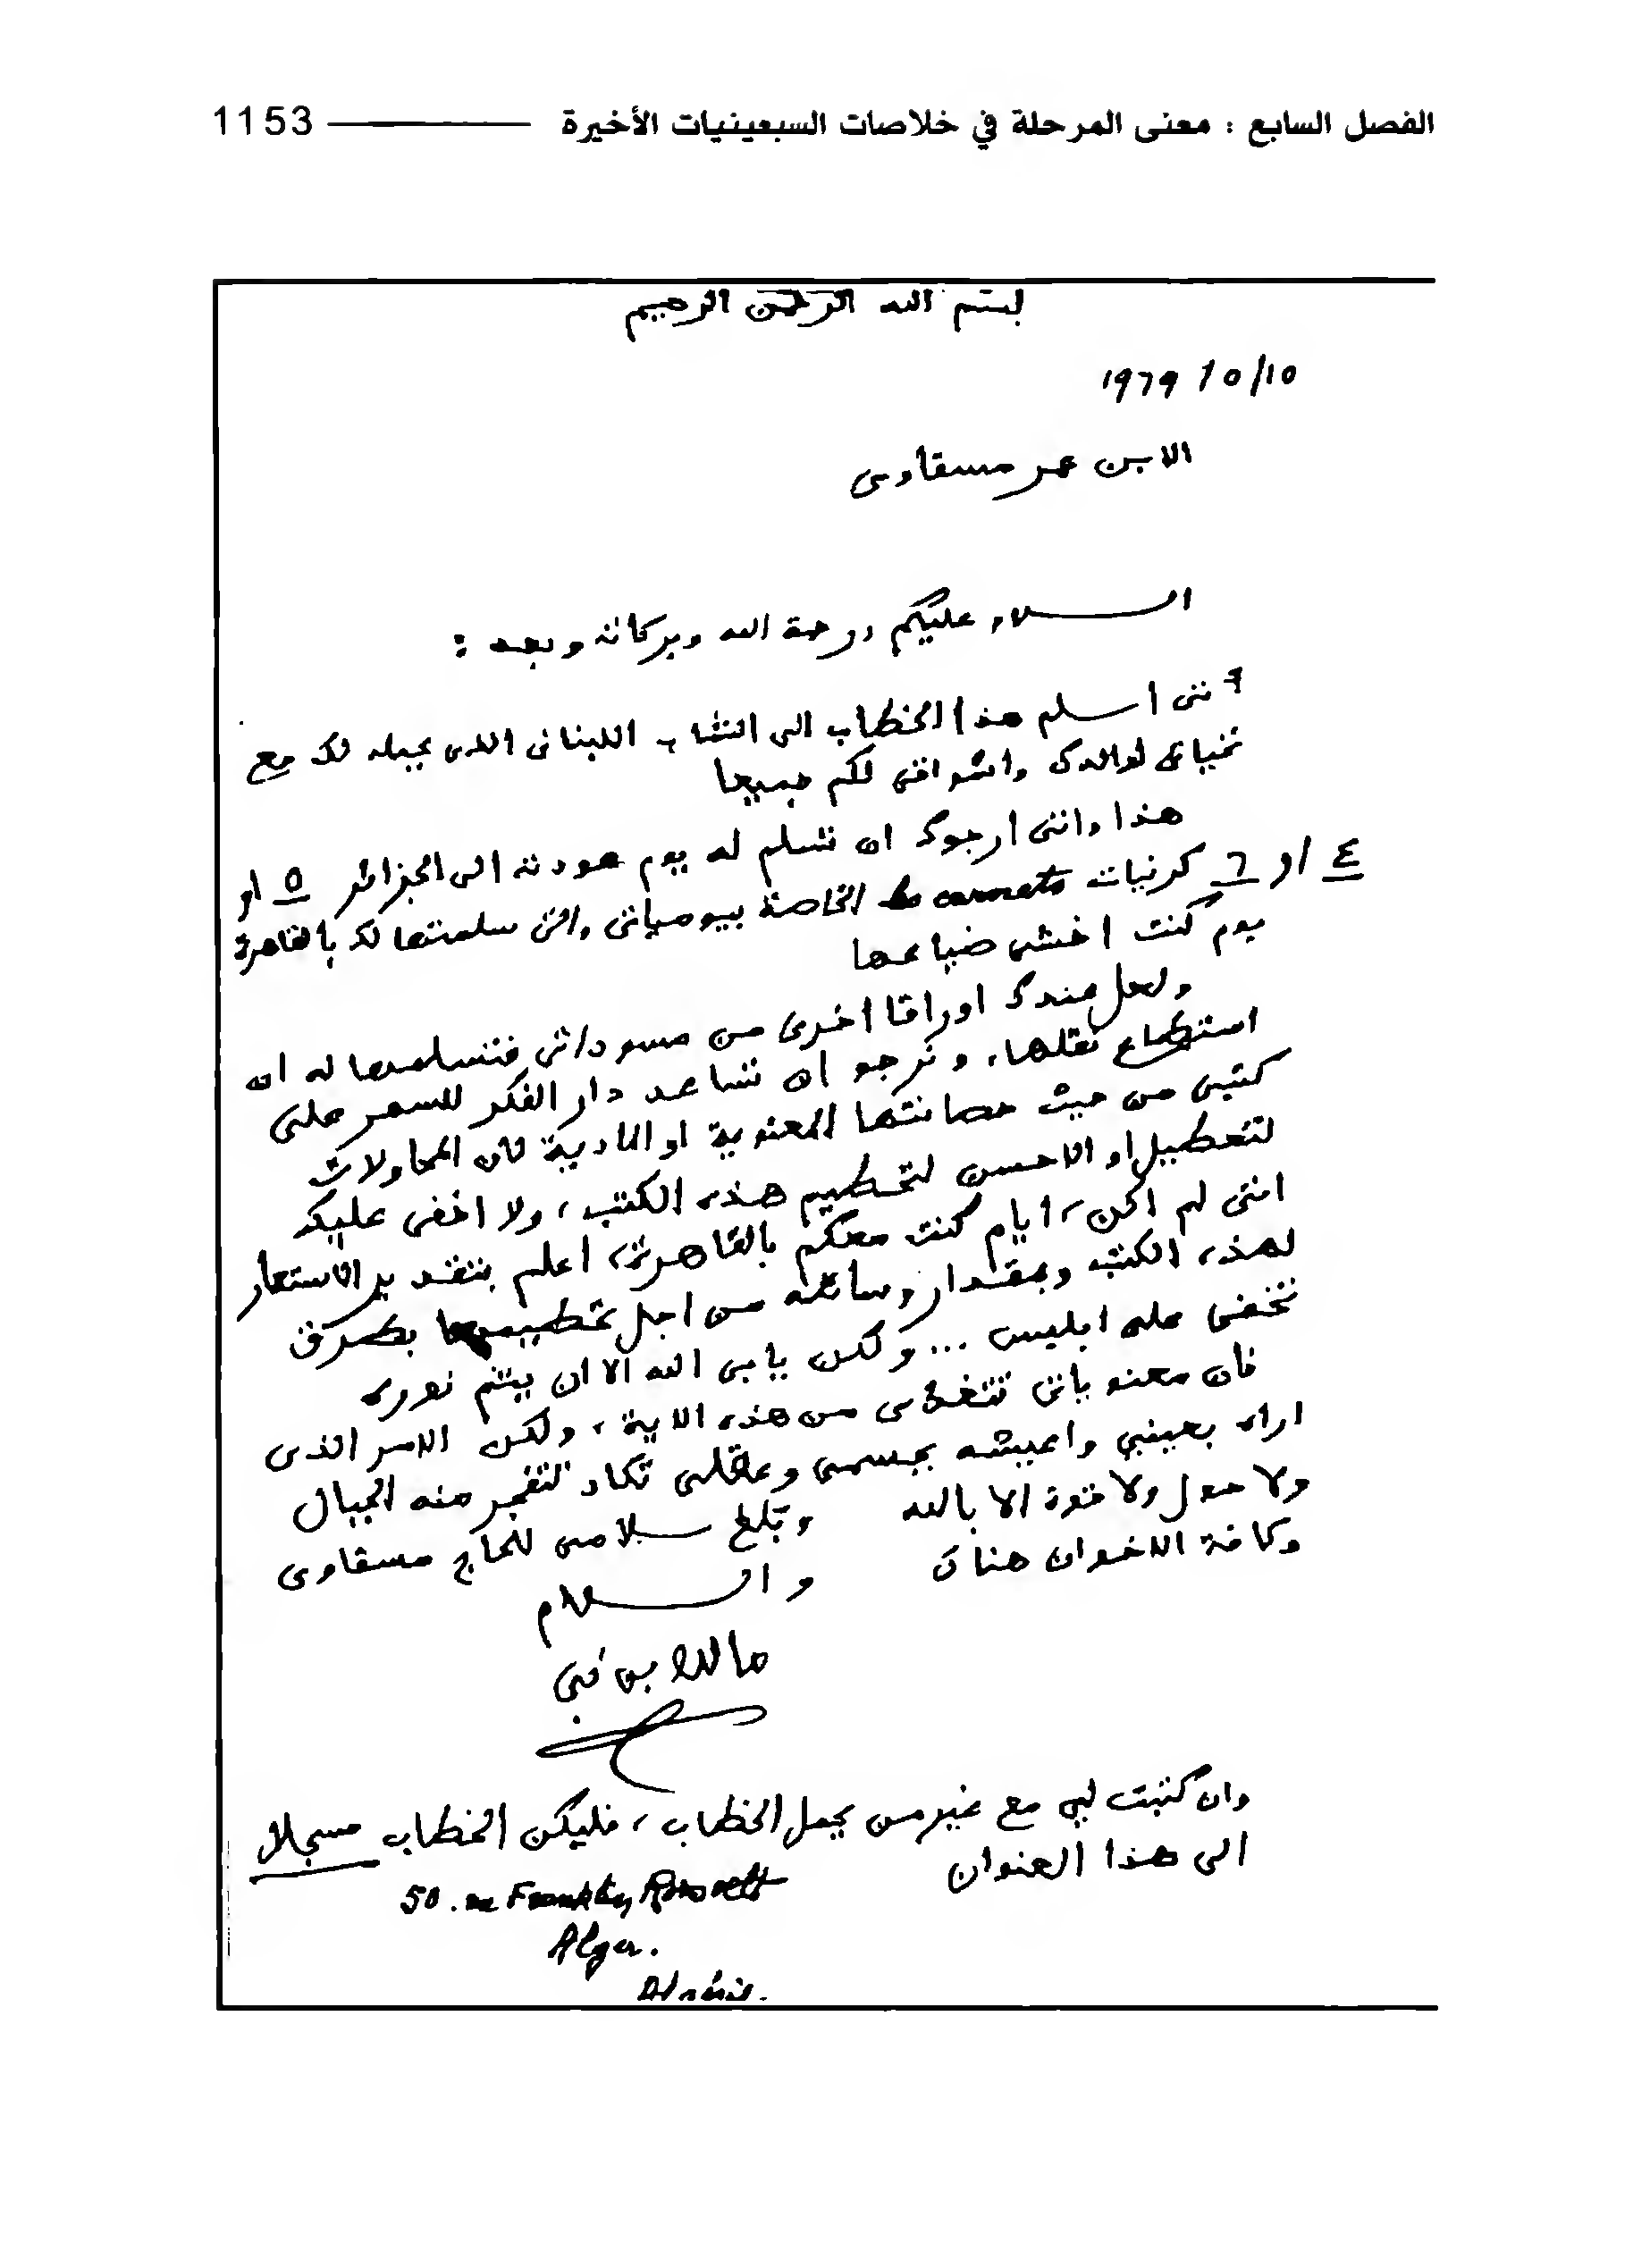 الفصل السابع : معنى المرحلة في خلاصات السبعينيات الأخيرة 1153
بسم الله الرحمن الرحيم
١٩٦٩ / ٥ / ١٥
الابن عمر مسقاوى
السلام عليكم ورحمة الله وبركاته وبعد :
اننى اسلم هذا الخطاب الى الشاب اللبنانى الذى يحمله لك مع
تحياتى لوالدك واشواقى لكم جميعا
هذا واننى ارجوك ان تسلم له يوم عودته الى الجزائر ٥ او
٤ او ٦ كرنيات les carnets الخاصة بيومياتى والتى سلمتها لك بالقاهرة
يوم كنت اخشى ضياعها
ولعل عندك اوراقا اخرى من مسوداتى فتسلمها له ان
استطاع نقلها، ونرجو ان تساعد دار الفكر للسهر على
كتبى من حيث حصانتها المعنوية او المادية لأن المحاولات
لتعطيل او الاحسن لتحطيم هذه الكتب، ولا اخفى عليك
اننى لم اكن، ايام كنت معكم بالقاهرة، اعلم بنقد ير الاستعمار
لهذه الكتب وبمقدار وسائله من اجل تحطيمها بطرق
تخفى على ابليس ... ولكن يابى الله الا ان يتم نوره
فان معنوياتى تتغذى من هذه الاية، ولكن الامر الذى
اراه بعينى واعيشه بجسمى وعقلى تكاد تتفجر منه الجبال
ولا حول ولا قوة الا بالله وتبلغ سلامى للحاج مسقاوى
وكافة الاخوان هناك
والسلام
مالك بن نبى
وان كتبت لى مع غير من يحمل الخطاب، فليكن الخطاب مسجلا
الى هذا العنوان
50. rue Franklin Roosevelt
Alger.
Algérie.